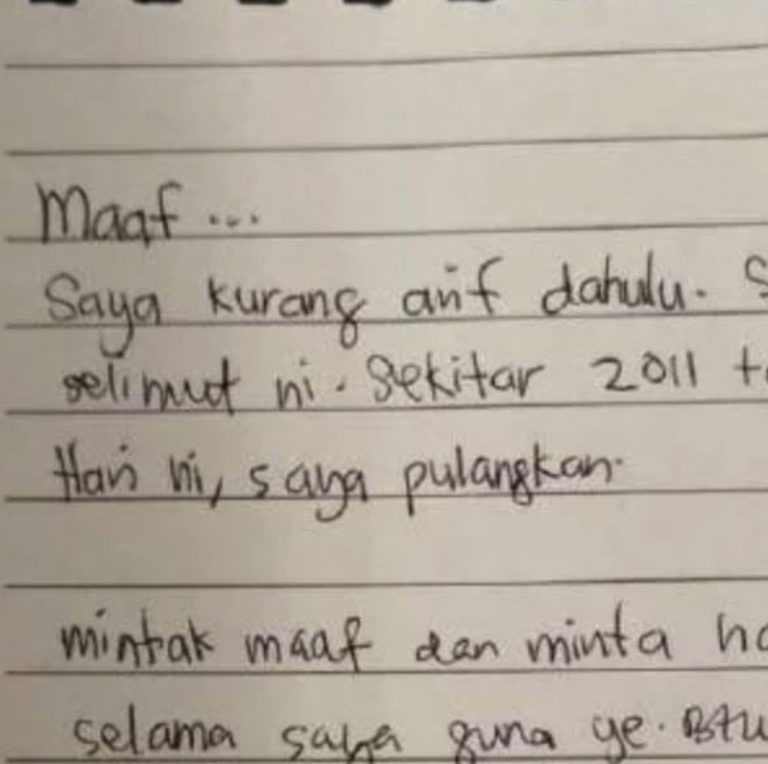 Maaf ...
Saya kurang arif dahulu. S
selimut ni. Sekitar 2011 t
Hari ni, saya pulangkan.
mintak maaf dan minta ha
selama saya guna ye.